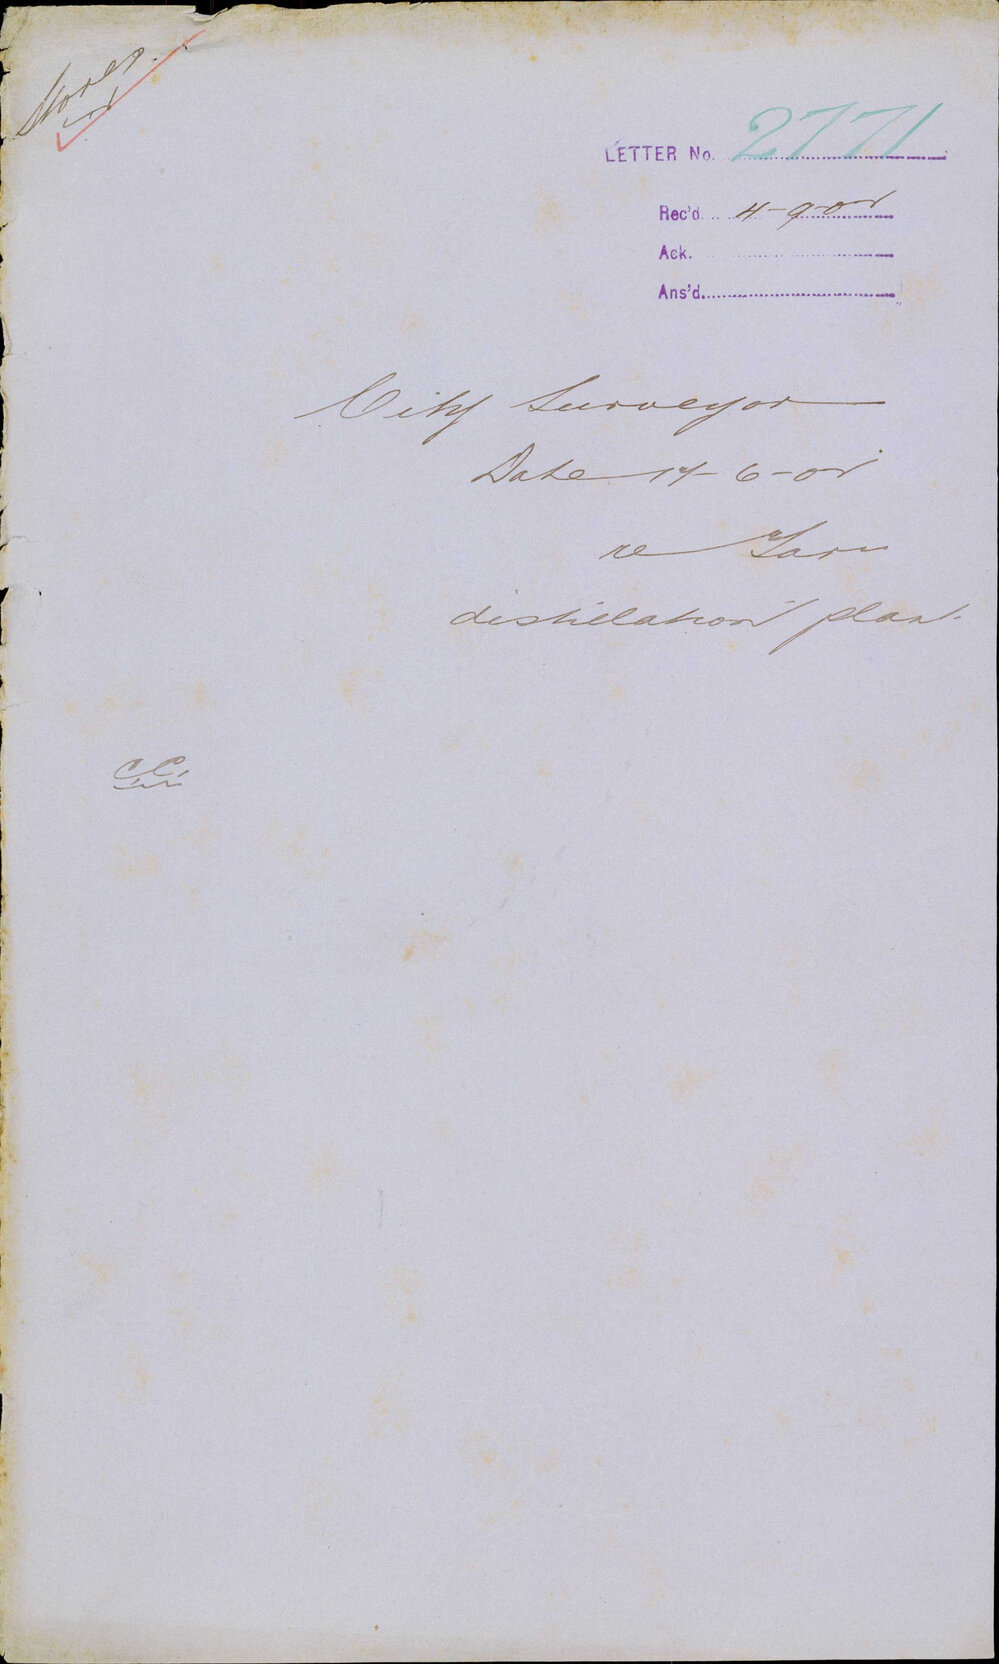 Stores
LETTER No. 2771
Rec'd 4-9-01
Ack.
Ans'd.
City Surveyor
Date 17-6-01
re Tar
distillation plant.
C.C.